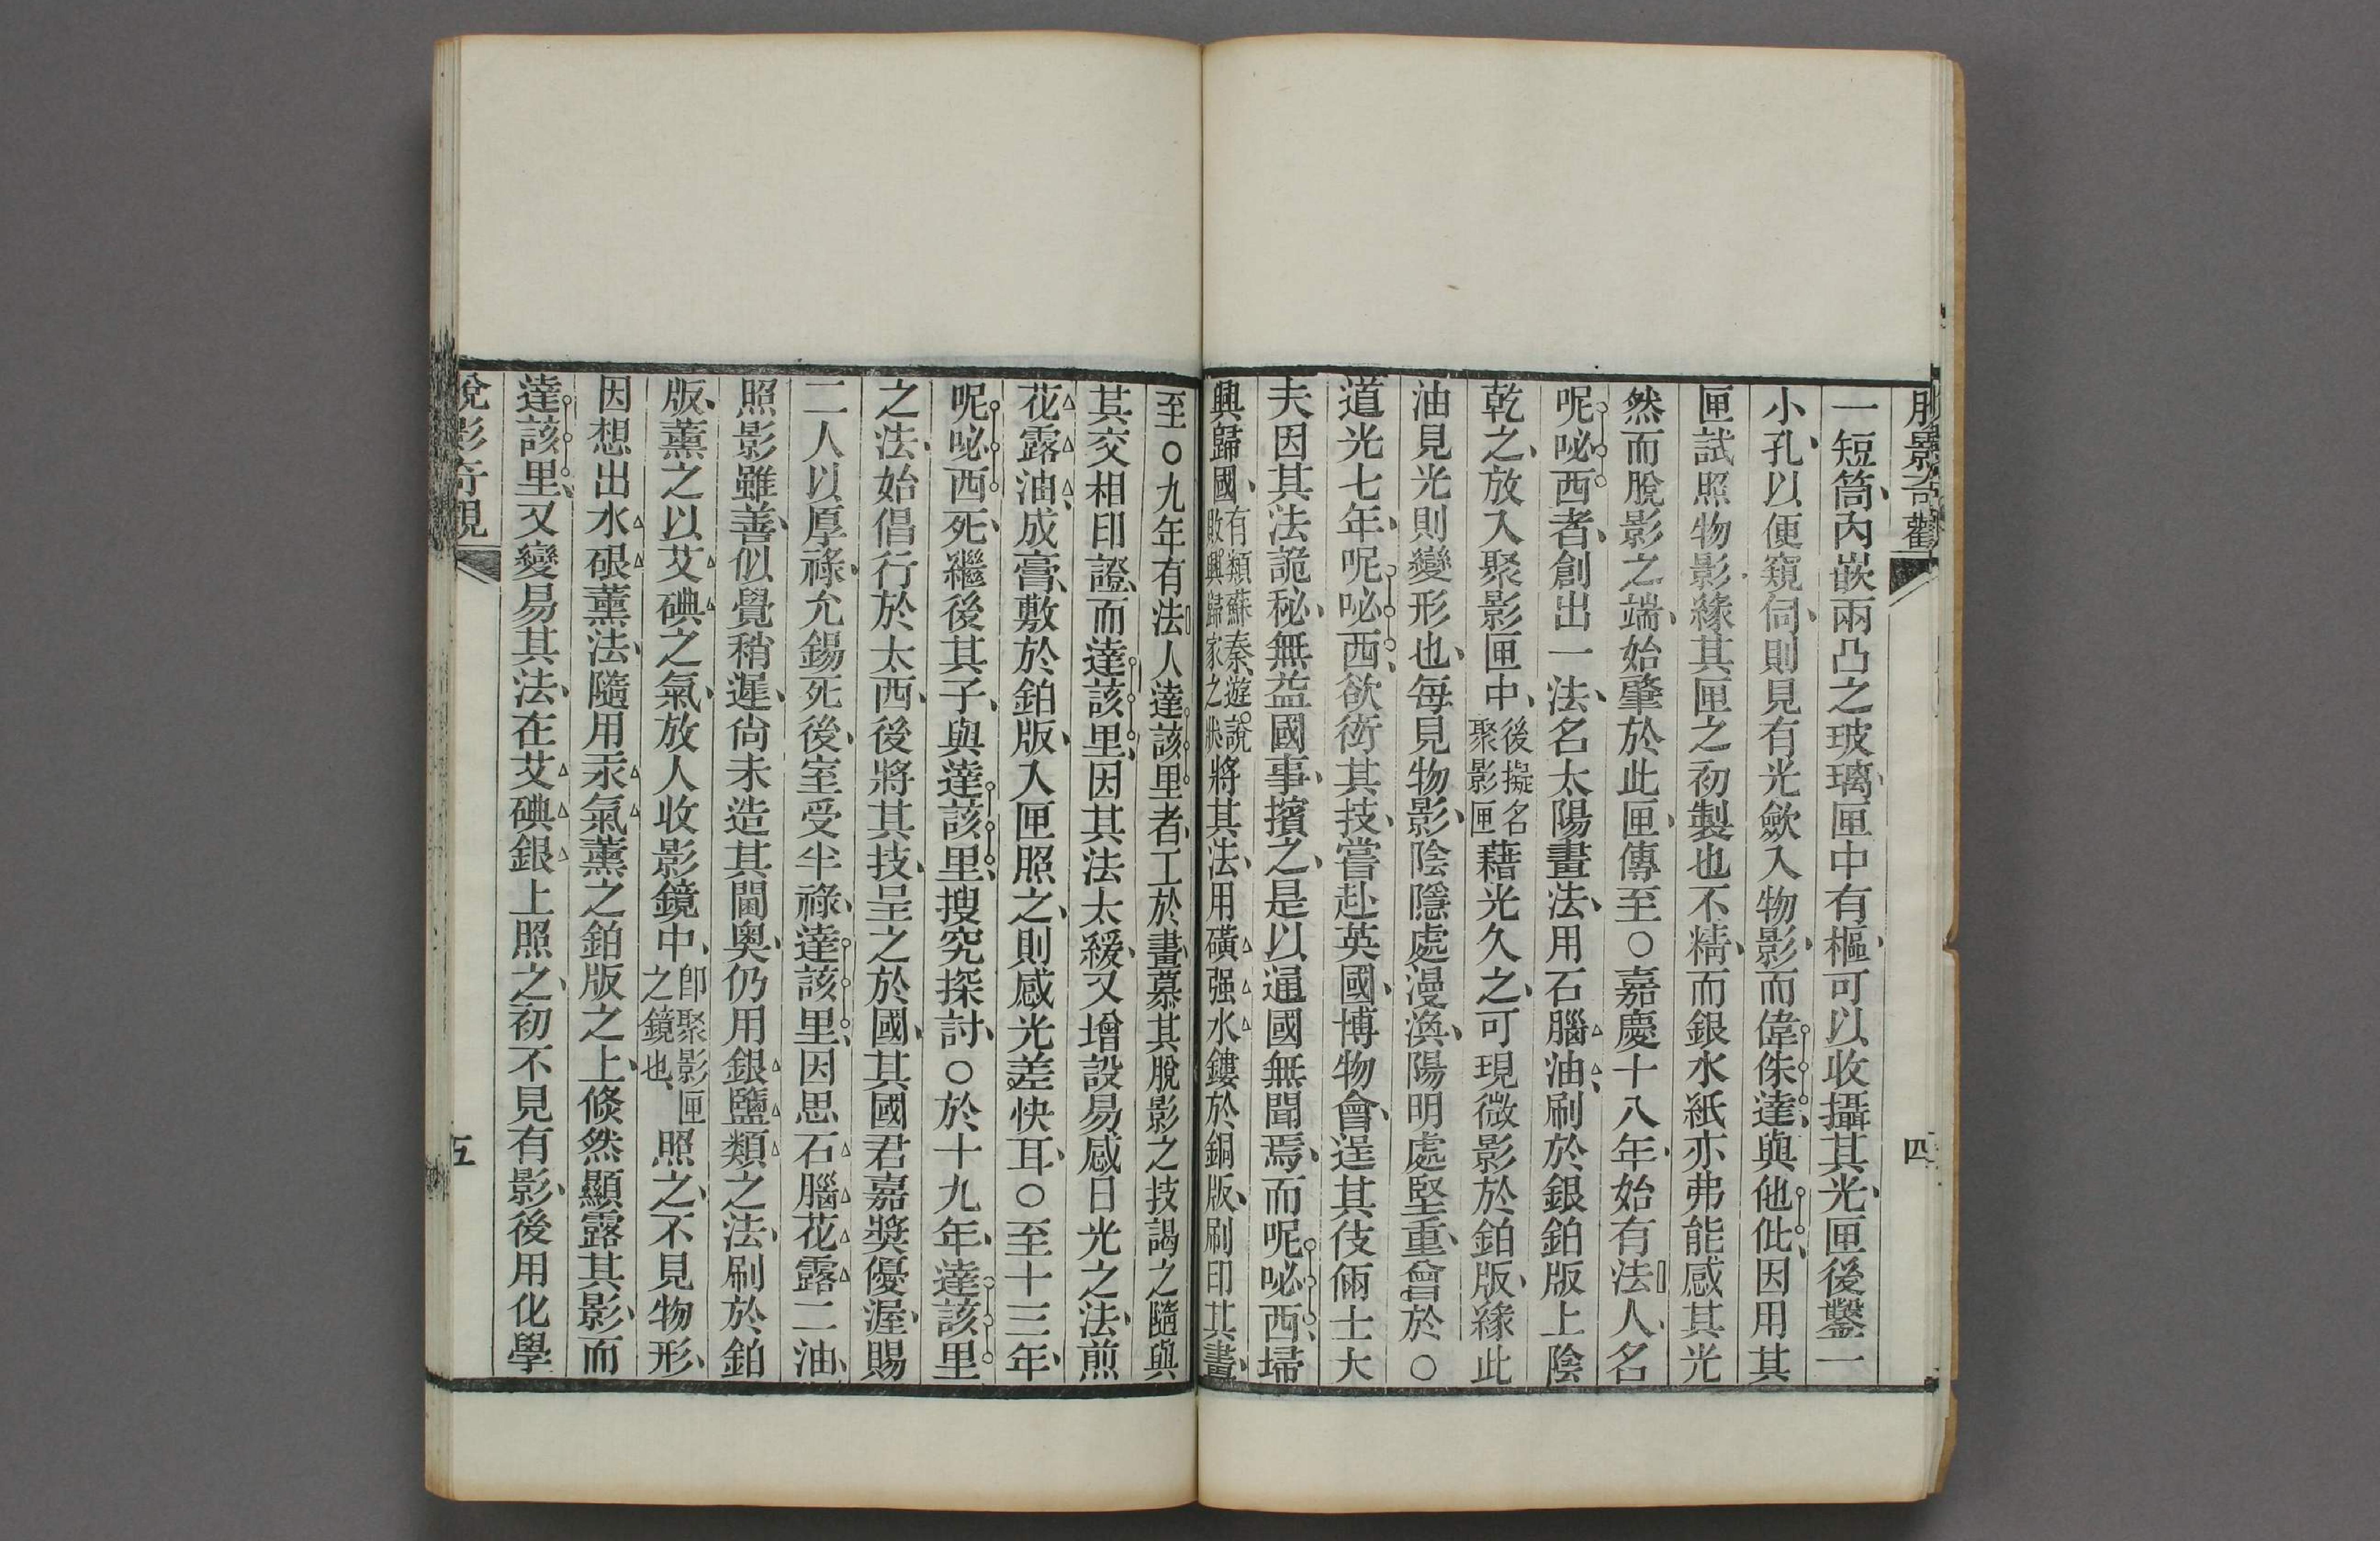 脫影奇觀
四
一短筒、內嵌兩凸之玻璃、匣中有樞、可以收攝其光、匣後鑿一
小孔、以便窺伺、則見有光歛入物影、而偉侏達、與他佌、因用其
匣試照物影、緣其匣之初製也不精、而銀水紙亦弗能感其光
然而脫影之端、始肇於此匣、傳至○嘉慶十八年、始有法人、名
呢咇西者、創出一法、名太陽畫法、用石腦油、刷於銀鉑版上陰
乾之、放入聚影匣中、後擬名聚影匣藉光久之、可現微影於鉑版、緣此
油見光則變形也、每見物影、陰隱處漫渙、陽明處堅重、曾於○
道光七年、呢咇西、欲衒其技、嘗赴英國、博物會、逞其伎倆、士大
夫因其法詭秘、無益國事、擯之、是以通國無聞焉、而呢咇西、埽
興歸國、有類蘇秦、遊說敗興歸家之狀將其法、用磺强水鏤於銅版、刷印其畫、
至○九年有法人達該里者、工於畫、慕其脫影之技、謁之、隨與
其交相印證、而達該里、因其法太緩、又增設易感日光之法、煎
花露油、成膏、敷於鉑版、入匣照之、則感光差快耳、○至十三年、
呢咇西死、繼後其子、與達該里、搜究探討、○於十九年、達該里
之法、始倡行於太西、後將其技、呈之於國、其國君嘉獎優渥、賜
二人以厚祿、允錫死後、室受半祿、達該里、因思石腦花露二油、
照影雖善、似覺稍遲、尚未造其閫奧、仍用銀鹽類之法、刷於鉑
版、薰之以艾碘之氣、放人收影鏡中、卽聚影匣之鏡也、照之、不見物形、
因想出水硍薰法、隨用汞氣薰之鉑版之上、倐然顯露其影、而
達該里、又變易其法、在艾碘銀上照之、初不見有影、後用化學
脫影奇觀
五